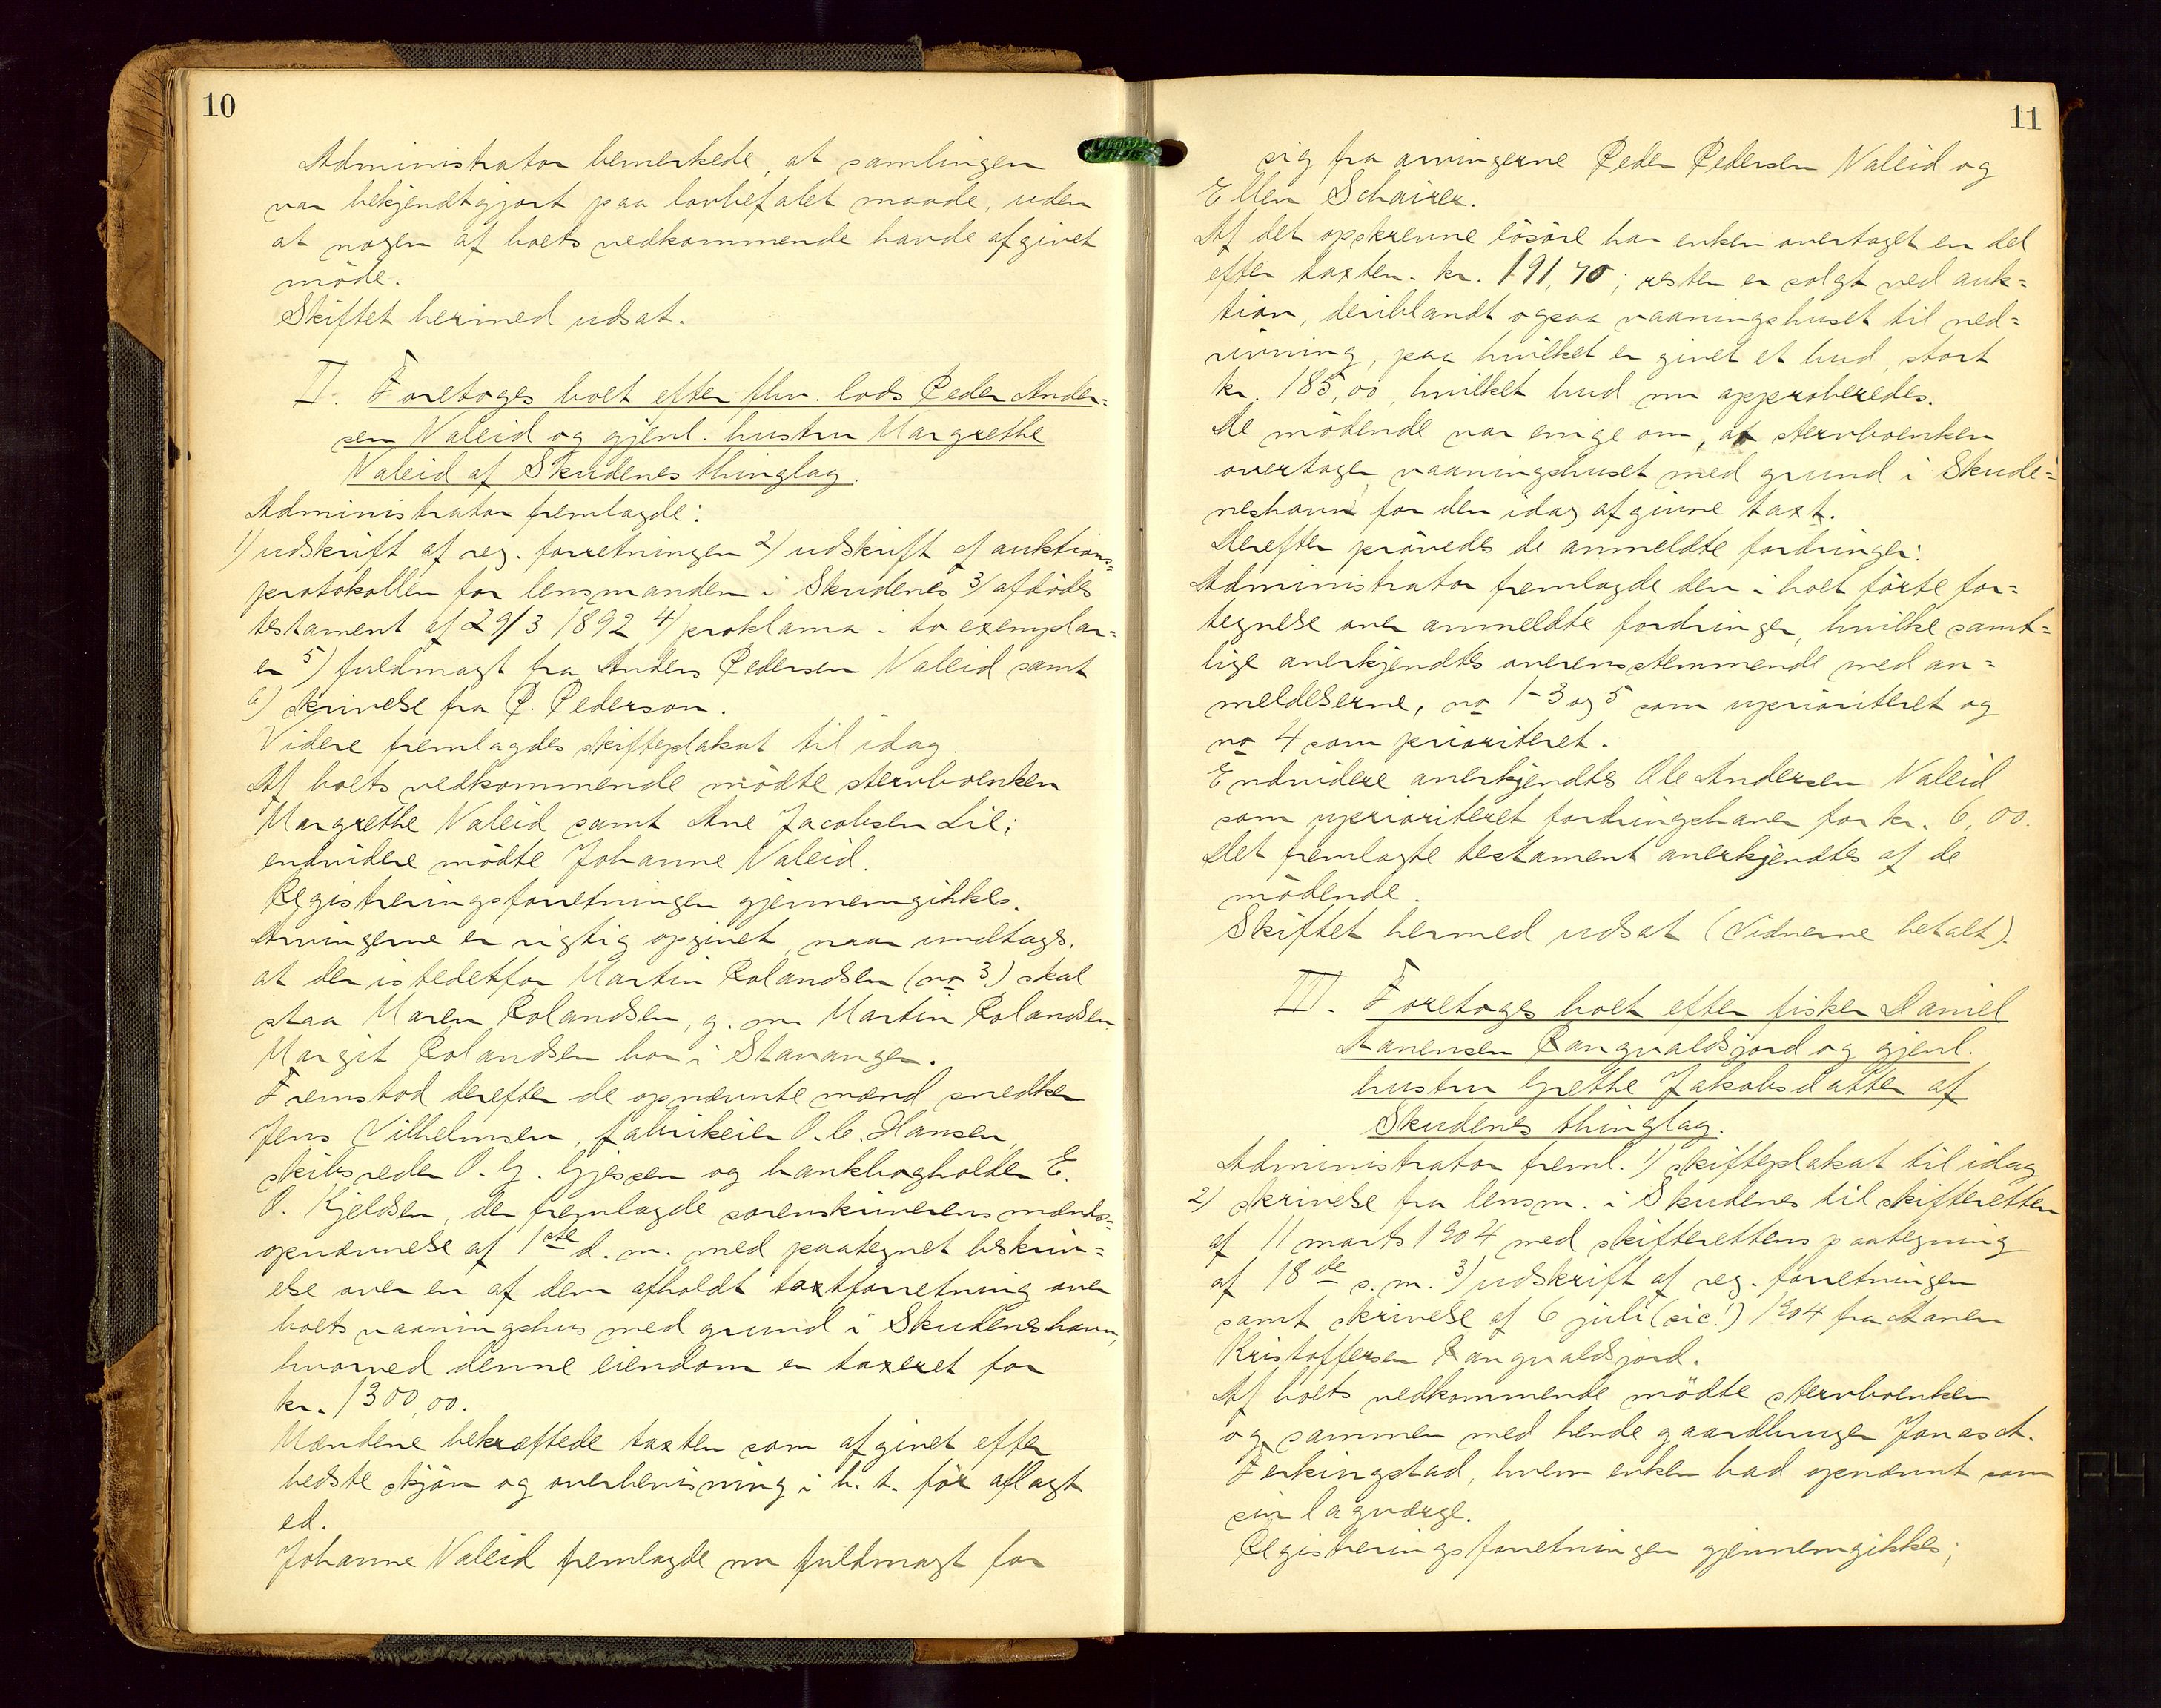 10
Administrator bemerkede, at samlingen
var bekjendtgjort paa lovbefalet maade, uden
at nogen af boets vedkommende havde afgivet
möde.
Skiftet hermed udsat.
II. Foretoges boet efter fhv. lods Peder Ander=
sen Valeid og gjenl. hustru Margrethe
Valeid af Skudenes thinglag.
Administrator fremlagde:
1) udskrift af reg. forretningen 2) udskrift af auktions=
protokollen for lensmanden i Skudenes 3) afdödes
testament af 29/3 1892 4) proklama i to exemplar=
er 5) fuldmagt fra Anders Pedersen Valeid samt
6) skrivelse fra P. Pederson.
Videre fremlagdes skifteplakat til idag.
Af boets vedkommende mödte stervboenken
Margrethe Valeid samt Ane Jacobsen Lie;
endvidere mödte Johanne Valeid.
Registreringsforretningen gjennemgikkes.
Arvingerne er rigtig opgivet, naar undtags.
at der istedetfor Martin Rolandsen (no 3) skal
staa Maren Rolandsen, g. m. Martin Rolandsen
Margit Rolandsen bor i Stavanger.
Fremstod derefter de opnævnte mænd snedker
Jens Vilhelmsen, fabrikeier O. C. Hansen,
skibsreder O. G. Gjessen og bankbogholder E.
O. Kjeldsen, der fremlagde sorenskriverens mænds=
opnævnelse af 1ste d. m. med paategnet beskriv=
else over en af dem afholdt taxtforretning over
boets vaaningshus med grund i Skudeneshavn,
hvorved denne eiendom er taxeret for
kr. 1300,00.
Mændene bekræftede taxten som afgivet efter
bedste skjön og overbevisning i h. t. för aflagt
ed.
Johanne Valeid fremlagde nu fuldmagt for
11
sig fra arvingerne Peder Pedersen Valeid og
Ellen Schairer.
Af det opskrevne lösöre har enken overtaget en del
efter taxten. kr. 191,70; resten er solgt ved auk=
tion, deriblandt ogsaa vaaningshuset til ned=
rivning, paa hvilket er givet et bud, stort
kr. 185,00, hvilket bud nu approberedes.
De mödende var enige om, at stervboenken
overtager vaaningshuset med grund i Skude=
neshavn for den idag afgivne taxt.
Derefter prövedes de anmeldte fordringer:
Administrator fremlagde den i boet förte for=
tegnelse over anmeldte fordringer, hvilke samt=
lige anerkjendtes overensstemmende med an=
meldelserne, no 1-3 og 5 som uprioriteret og
no 4 som prioriteret.
Endvidere anerkjendtes Ole Andersen Valeid
som uprioriteret fordringshaver for kr. 6,00.
Det fremlagte testament anerkjendtes af de
mödende.
Skiftet hermed udsat (Vidnerne betalt).
III. Foretoges boet efter fisker Daniel
Aanensen Rangvaldsjord og gjenl.
hustru Grethe Jakobsdatter af
Skudenes thinglag.
Administrator freml. 1) skifteplakat til idag
2) skrivelse fra lensm. i Skudenes til skifteretten
af 11 marts 1904 med skifterettens paategning
af 18de s. m. 3) udskrift af reg. forretningen
samt skrivelse af 6 juli (sic!) 1904 fra Aanen
Kristoffersen Rangvaldsjord.
Af boets vedkommende mödte stervboenken
og sammen med hende gaardbruger Jonas A.
Ferkingstad, hvem enken bad opnævnt som
sin lagværge.
Registreringsforretningen gjennemgikkes;